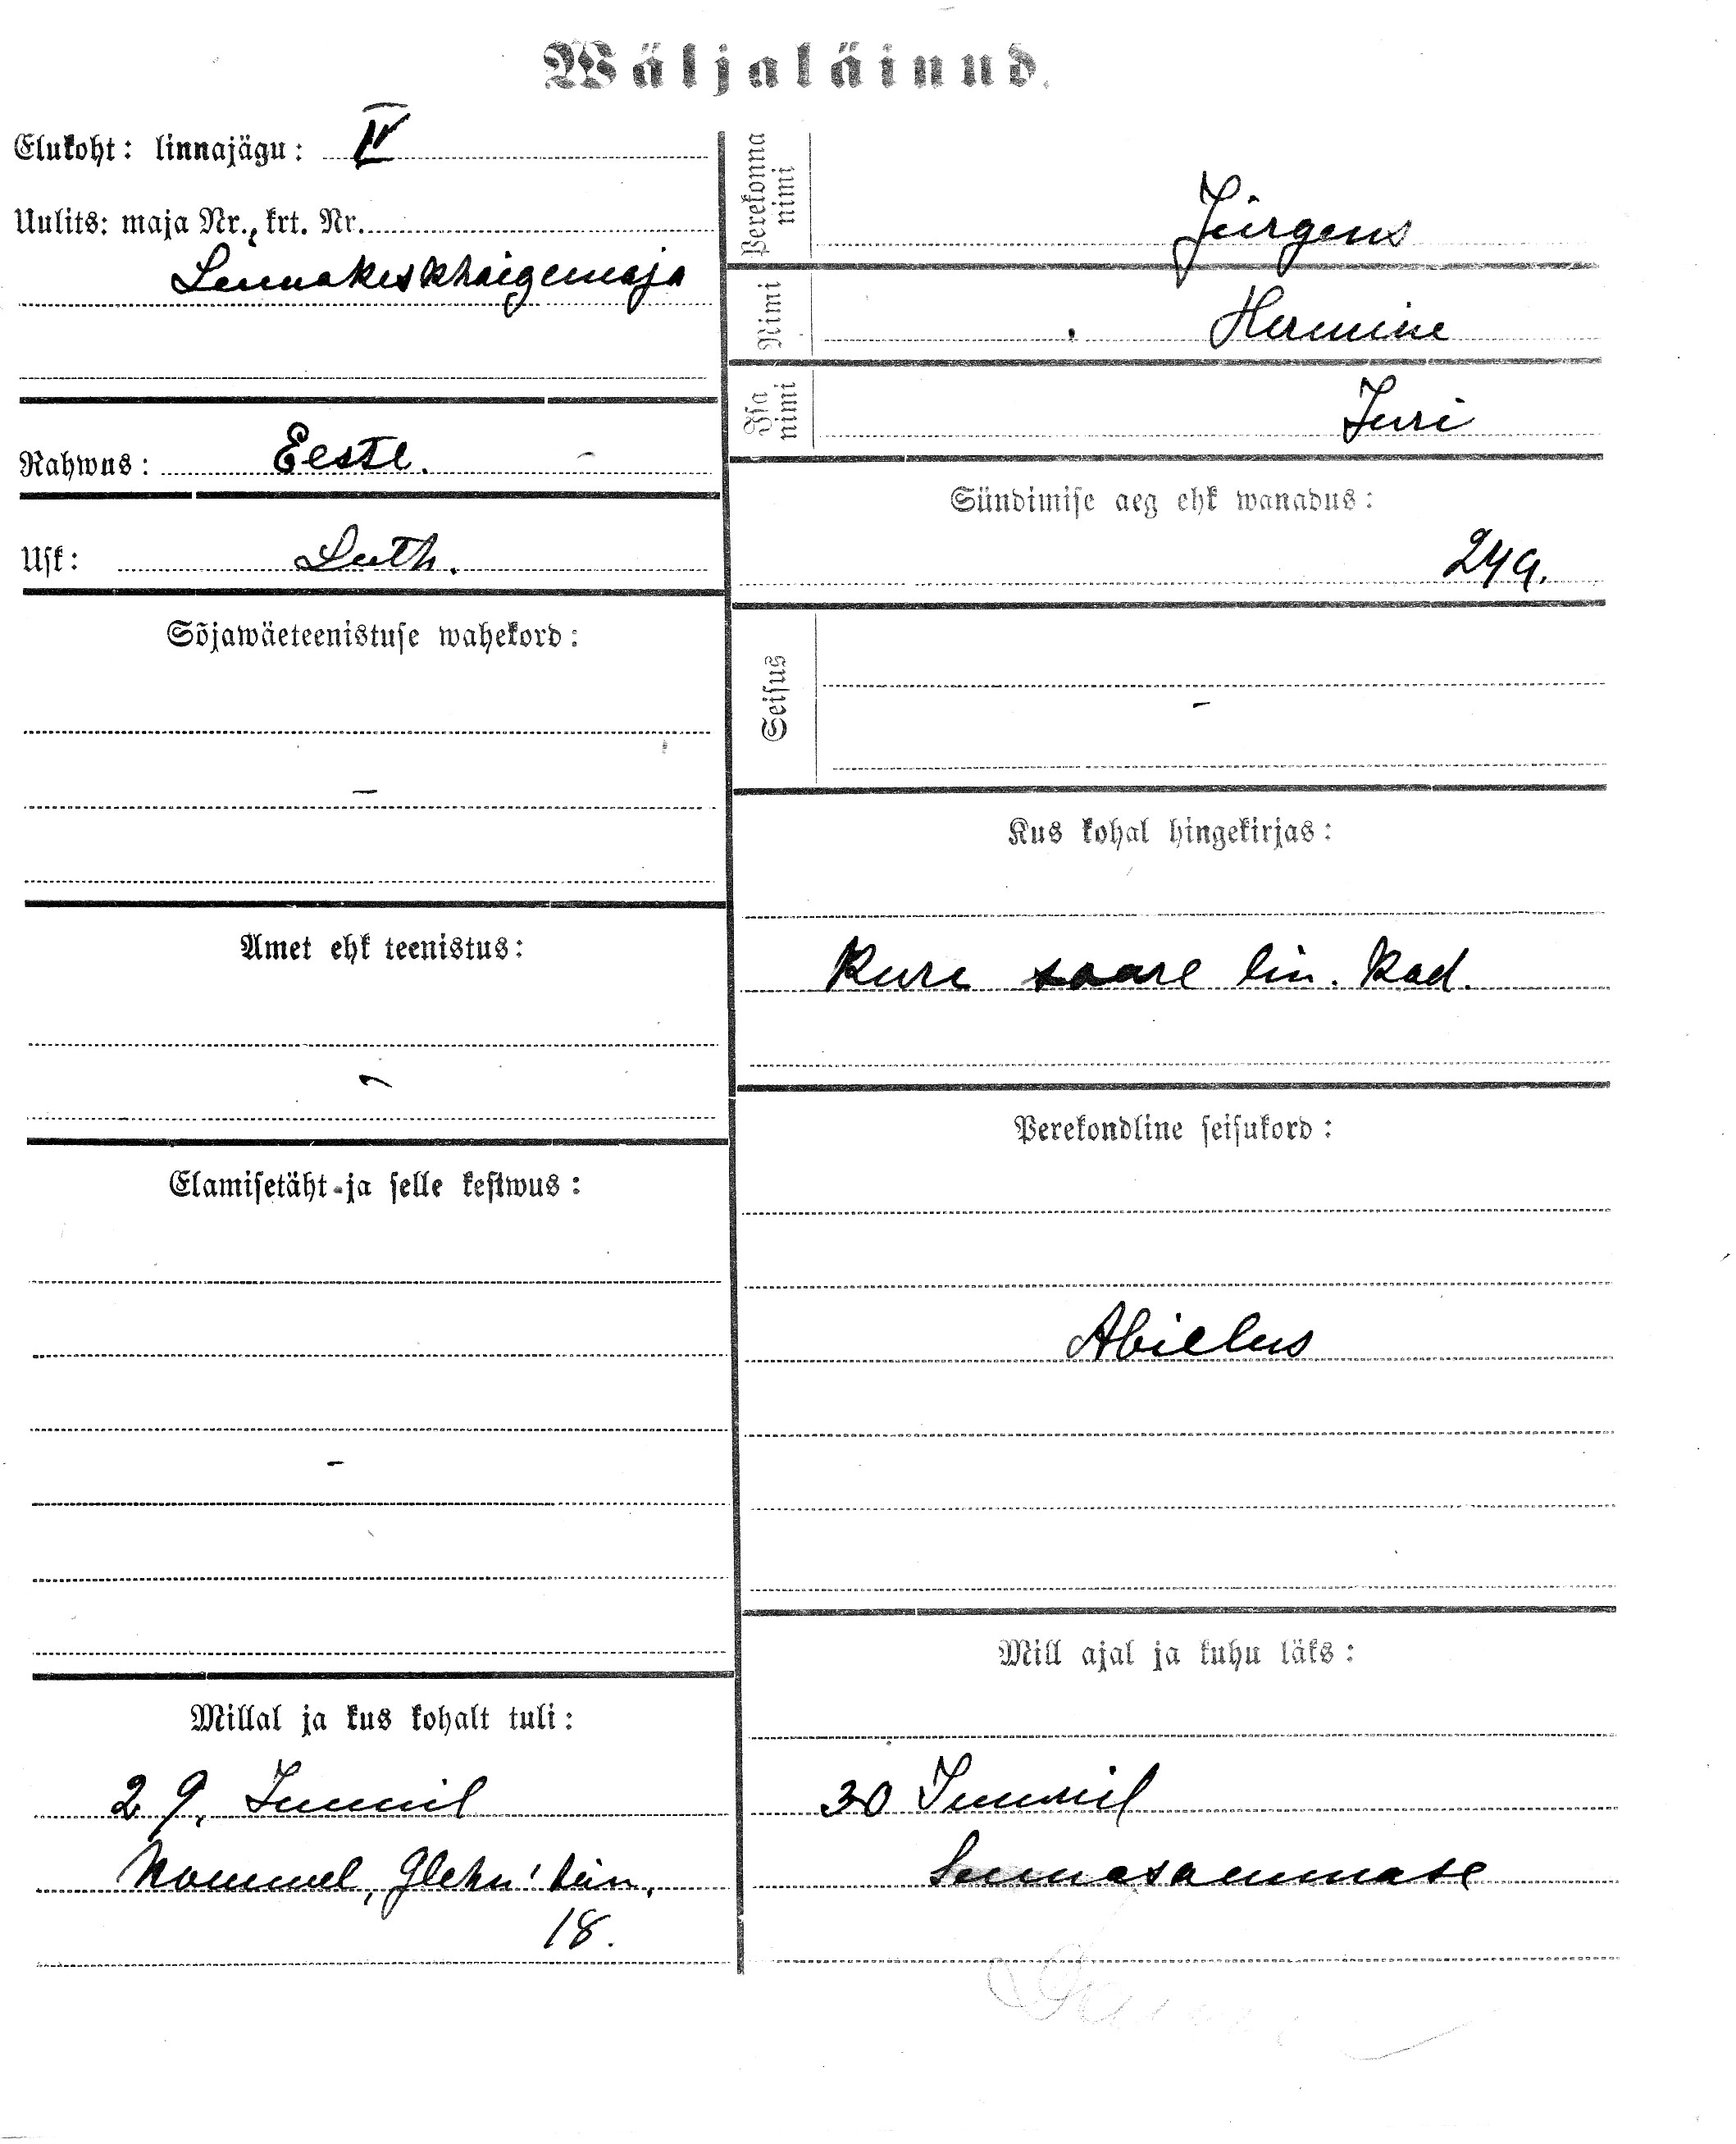 Wäljaläinud.
Elukoht: linnajägu: IV
Uulits: maja Nr., krt. Nr.
Linnakeskhaigemaja
Rahwus: Eestl.
Usk: Luth.
Sõjawäeteenistuse wahekord:
-
Amet ehk teenistus:
-
Elamisetäht-ja selle kestwus:
-
Millal ja kus kohalt tuli:
29. Junnil
Nommel, Glehn'i
18.
Perekonna nimi
Jürgens
Nimi
Hermine
Isa nimi
Juri
Sündimise aeg ehk wanadus:
24 a.
Seisus
-
Kus kohal hingekirjas:
Kure saare lin. kod.
Perekondline seisukord:
Abielus
Mill ajal ja kuhu läks:
30 Junnil